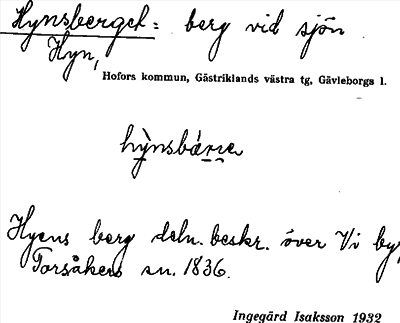 Hynsberget: berg vid sjön
Hyn,
Hofors kommun, Gästriklands västra tg, Gävleborgs l.
hỳnsbárre
Hyens berg deln. beskr. över Vi by,
Torsåkers sn. 1836.
Ingegärd Isaksson 1932